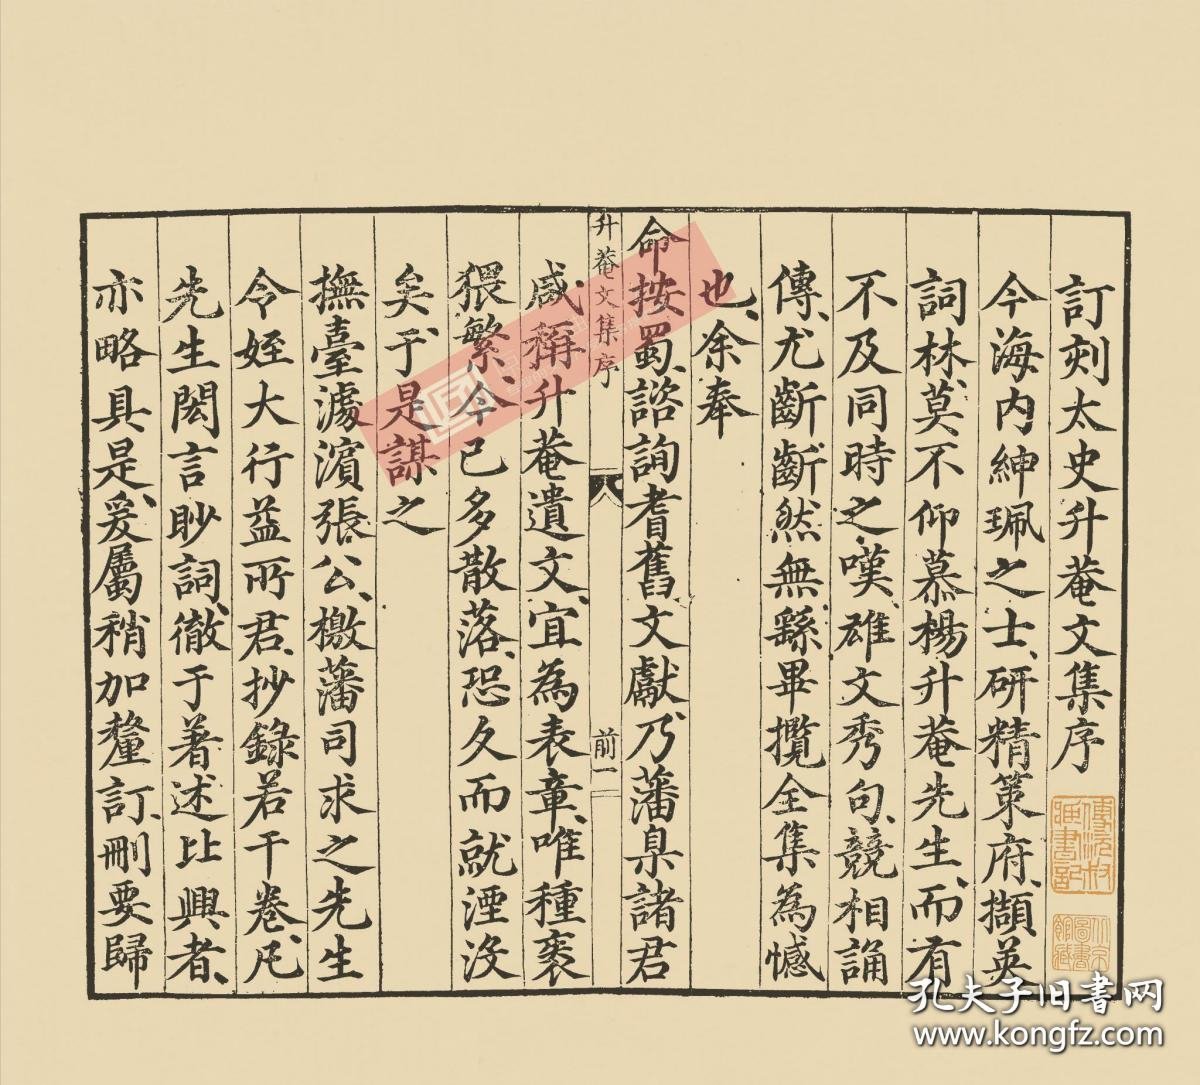 訂刻太史升菴文集序
今海內紳珮之士、研精策府、擷英
詞林、莫不仰慕楊升菴先生、而有
不及同時之嘆、雄文秀句、競相誦
傳、尤齗齗然無繇畢攬全集為憾
也、余奉
命按蜀、諮詢耆舊文獻、乃藩臬諸君
升菴文集序
前一
咸稱升菴遺文、宜為表章、唯種袠
猥繁、今已多散落、恐久而就湮沒
矣、于是謀之
撫臺滹濱張公、檄藩司求之先生
令姪大行益所君、抄錄若干卷、凡
先生閎言眇詞、徹于著述比興者、
亦略具是、爰屬稍加釐訂、刪要歸
傅沅叔
書記
北京
圖書
館藏
孔夫子旧书网
www.kongfz.com